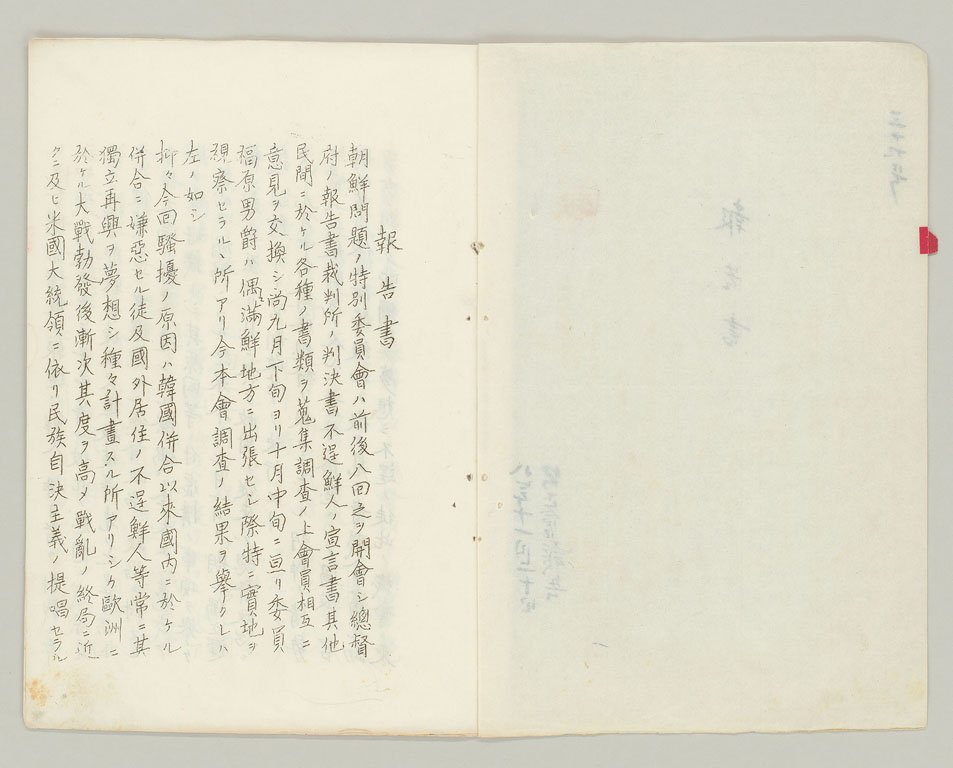 報告書
朝鮮問題ノ特別委員會ハ前後八回之ヲ開會シ總督
府ノ報告書裁判所ノ判決書不逞鮮人ノ宣言書其他
民間ニ於ケル各種ノ書類ヲ蒐集調査ノ上會員相互ニ
意見ヲ交換シ尚九月下旬ヨリ十月中旬ニ亘リ委員
福原男爵ハ偶〻滿鮮地方ニ出張セシ際特ニ實地ヲ
視察セラルヽ所アリ今本會調査ノ結果ヲ擧クレハ
左ノ如シ
抑々今回騷擾ノ原因ハ韓國併合以來國内ニ於ケル
併合ニ嫌惡セル徒及國外居住ノ不逞鮮人等常ニ其
獨立再興ヲ夢想シ種々計畫スル所アリシケ歐洲ニ
於ケル大戰勃發後漸次其度ヲ高メ戰亂ノ終局ニ近
クニ及ヒ米國大統領ニ依リ民族自決主義ノ提唱セラル